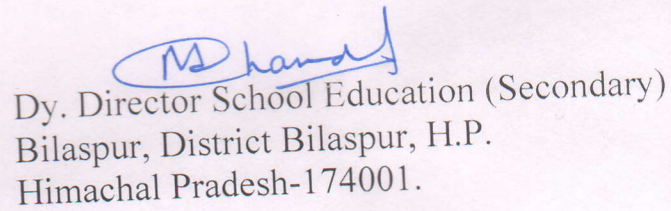 Dy. Director School Education (Secondary)
Bilaspur, District Bilaspur, H.P.
Himachal Pradesh-174001.